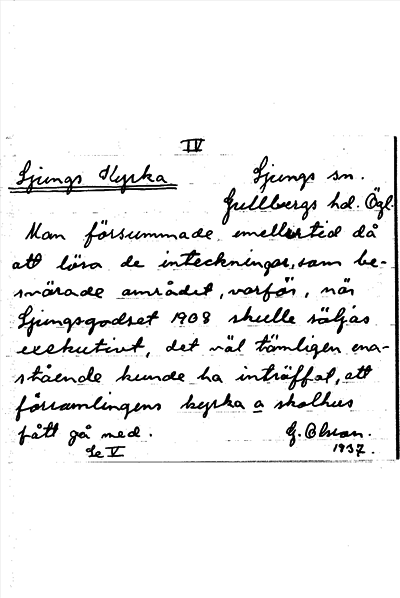 IV
Ljungs Kyrka
Ljungs sn.
Gullbergs hd. Ögl.
Man försummade emellertid då
att lösa de inteckningar, som be-
svärade området, varför, när
Ljungsgodset 1908 skulle säljas
exekutivt, det väl tämligen ena-
stående kunde ha inträffat, att
församlingens kyrka a skolhus
fått gå med.
G. Olson.
1937.
Se V